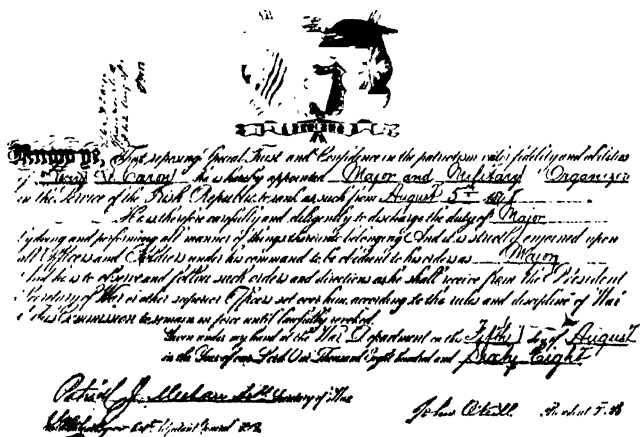 Know ye, That reposing Special Trust and Confidence in the patriotism valor fidelity and abilities
of Henri Le Caron he is hereby appointed Major and Military Organizer
in the service of the Irish Republic to rank as such from August 5th 1868
He is therefore carefully and diligently to discharge the duty of Major
by doing and performing all manner of things thereunto belonging And it is strictly enjoined upon
all Officers and Soldiers under his command to be obedient to his orders as Major
And he is to observe and follow such orders and directions as he shall receive from the President
Secretary of War or other superior Officers set over him, according to the rules and discipline of War
This Commission to remain in force until lawfully revoked.
Given under my hand at the War Department on the Fifth day of August
in the Year of our Lord One Thousand Eight hundred and Sixty Eight
Patrick J. Meehan Secretary of War
Adjutant General
John O'Neill President